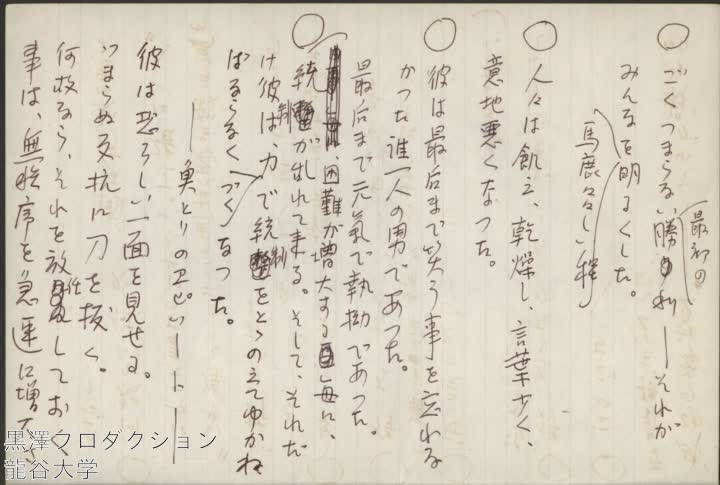 ○ ごくつまらない勝利―それが
最初の
みんなを明るくした。
馬鹿々々しい程
○ 人々は飢え、乾燥し、言葉少く、
意地悪くなった。
○ 彼は最后まで笑う事を忘れな
かった誰一人の男であった。
最后まで元気で執拗であった。
○ 困難が増大する毎に、
統制が乱れて来る。そして、それだ
け彼は、力で統制をとゝのえてゆかね
ばならなくなった。
―魚とりのエピソード―
彼は恐ろしい一面を見せる。
つまらぬ反抗に刀を抜く。
何故なら、それを放任しておく
事は、無秩序を急速に増大
黒澤プロダクション
龍谷大学